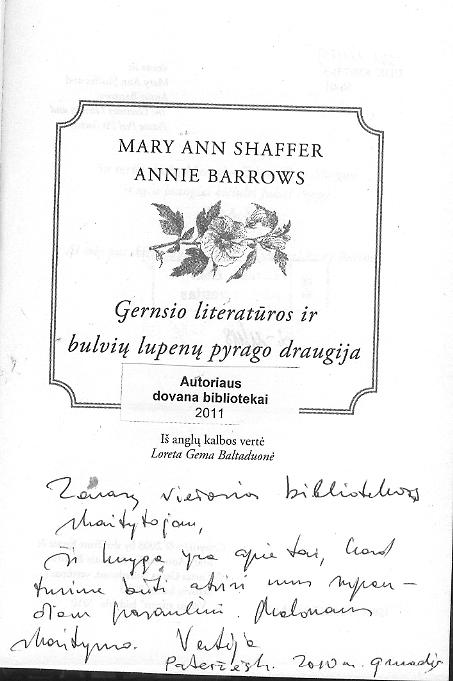 MARY ANN SHAFFER
ANNIE BARROWS
Gernsio literatūros ir
bulvių lupenų pyrago draugija
Autoriaus
dovana bibliotekai
2011
Iš anglų kalbos vertė
Loreta Gema Baltaduonė
Zarasų viešosios bibliotekos
skaitytojams,
Ši knyga yra apie tai, kad
turime būti atviri mus supan-
čiam pasauliui. Malonaus
skaitymo. Vertėja
2010 m. gruodis